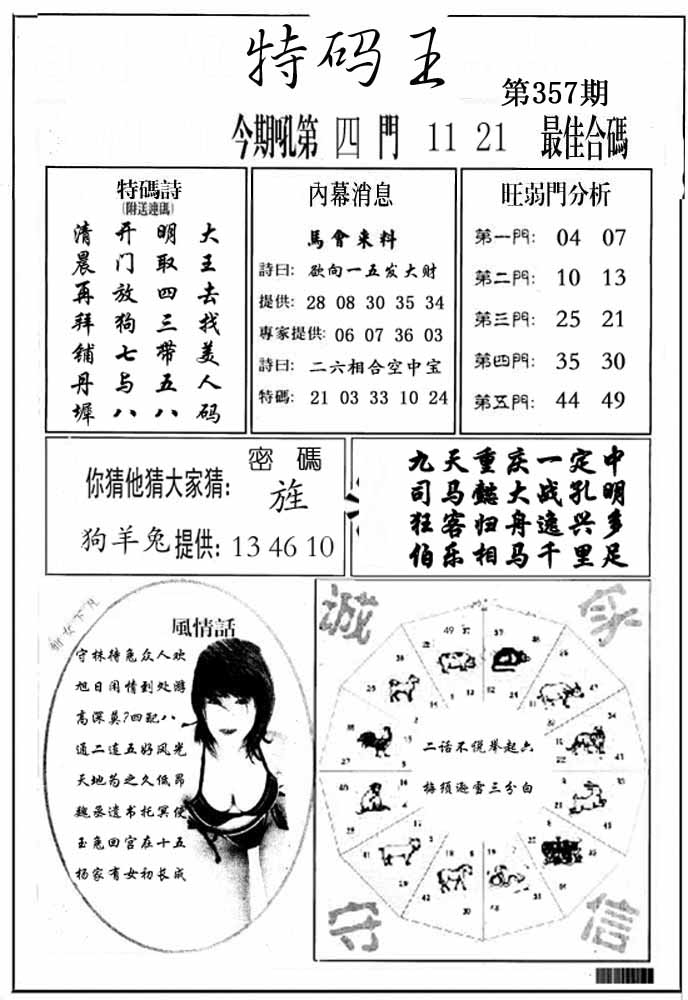 特码王
第357期
今期吼第 四 門 11 21 最佳合碼
特碼詩
(附送連碼)
清 开 明 大
晨 门 取 王
再 放 四 去
拜 狗 三 找
铺 七 带 美
丹 与 五 人
墀 八 八 码
內幕消息
馬會來料
詩曰: 欲向一五发大财
提供: 28 08 30 35 34
專家提供: 06 07 36 03
詩曰: 二六相合空中宝
特碼: 21 03 33 10 24
旺弱門分析
第一門: 04 07
第二門: 10 13
第三門: 25 21
第四門: 35 30
第五門: 44 49
密碼
你猜他猜大家猜: 旌
狗羊兔提供: 13 46 10
九天重庆一定中
司马懿大战孔明
狂客归舟逸兴多
伯乐相马千里足
風情話
守株待兔众人欢
旭日闲情到处游
高深莫?四配八
通二连五好风光
天地为之久低昂
魏丞遗书托冥使
玉兔回宫在十五
杨家有女初长成
誠
守
信
二话不说举起六
梅须逊雪三分白
49 37